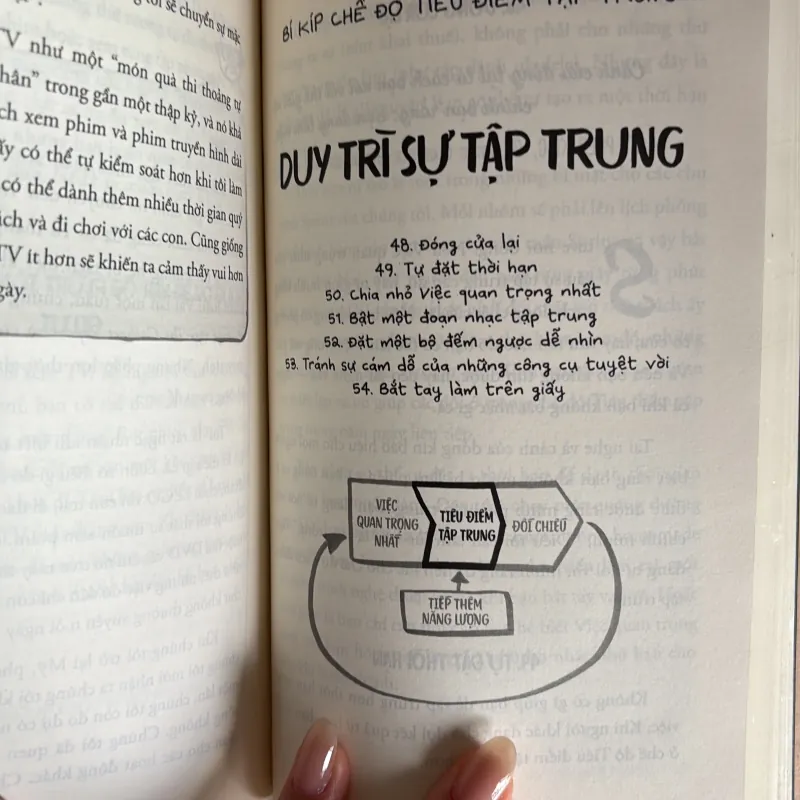 sẽ chuyển sự mặc
TV như một “món quà thi thoảng tự
hân” trong gần một thập kỷ, và nó khả
ch xem phim và phim truyền hình dài
ấy có thể tự kiểm soát hơn khi tôi làm
có thể dành thêm nhiều thời gian quý
ích và đi chơi với các con. Cũng giống
TV ít hơn sẽ khiến ta cảm thấy vui hơn
gày.
BÍ KÍP CHẾ ĐỘ TIÊU ĐIỂM TẬP TRUNG
DUY TRÌ SỰ TẬP TRUNG
48. Đóng cửa lại
49. Tự đặt thời hạn
50. Chia nhỏ Việc quan trọng nhất
51. Bật một đoạn nhạc tập trung
52. Đặt một bộ đếm ngược dễ nhìn
53. Tránh sự cám dỗ của những công cụ tuyệt vời
54. Bắt tay làm trên giấy
VIỆC
QUAN TRỌNG
NHẤT
TIÊU ĐIỂM
TẬP TRUNG
ĐỐI CHIẾU
TIẾP THÊM
NĂNG LƯỢNG